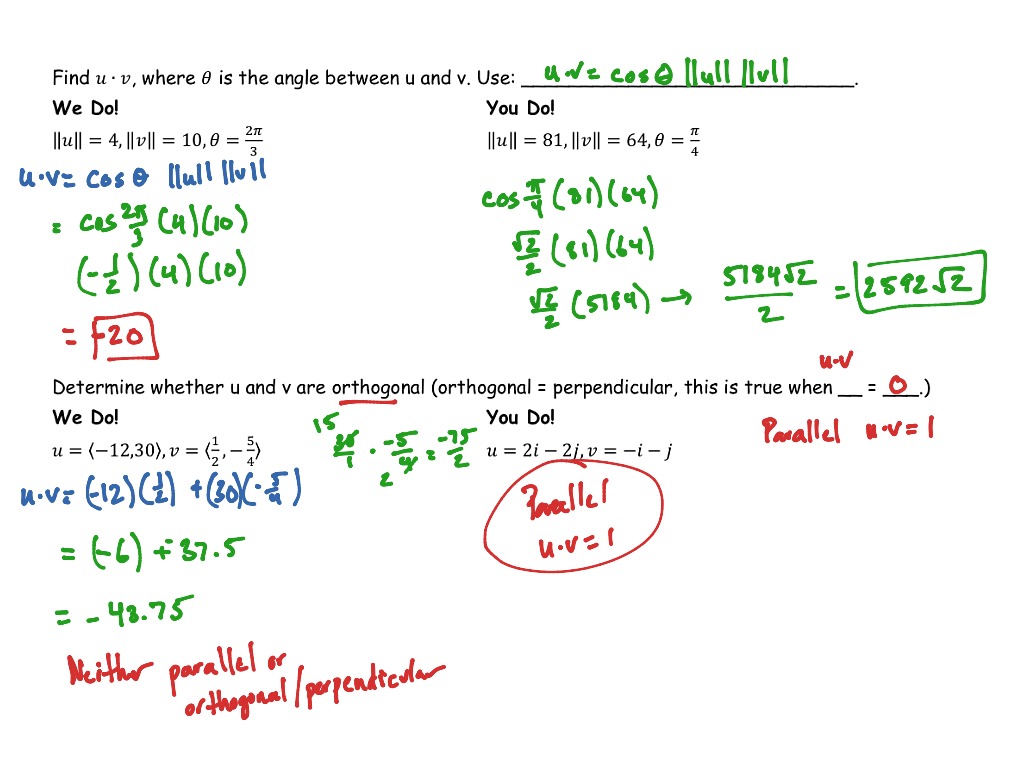 Find u · v, where θ is the angle between u and v. Use: u·v = cos θ ||u|| ||v|| .
We Do!
‖u‖ = 4, ‖v‖ = 10, θ = 2π/3
u·v = cos θ ||u|| ||v||
= cos 2π/3 (4)(10)
(-1/2)(4)(10)
= -20
You Do!
‖u‖ = 81, ‖v‖ = 64, θ = π/4
cos π/4 (81)(64)
√2/2 (81)(64)
√2/2 (5184) → 5184√2/2 = 2592√2
u·v
Determine whether u and v are orthogonal (orthogonal = perpendicular, this is true when __ = 0.)
Parallel u·v = 1
We Do!
u = ⟨−12,30⟩, v = ⟨1/2, −5/4⟩
15
30/1 · -5/4 = -75/2
2
u·v = (-12)(1/2) + (30)(-5/4)
= (-6) + -37.5
= - 43.75
Neither parallel or
orthogonal/perpendicular
You Do!
u = 2i − 2j, v = −i − j
Parallel
u·v = 1